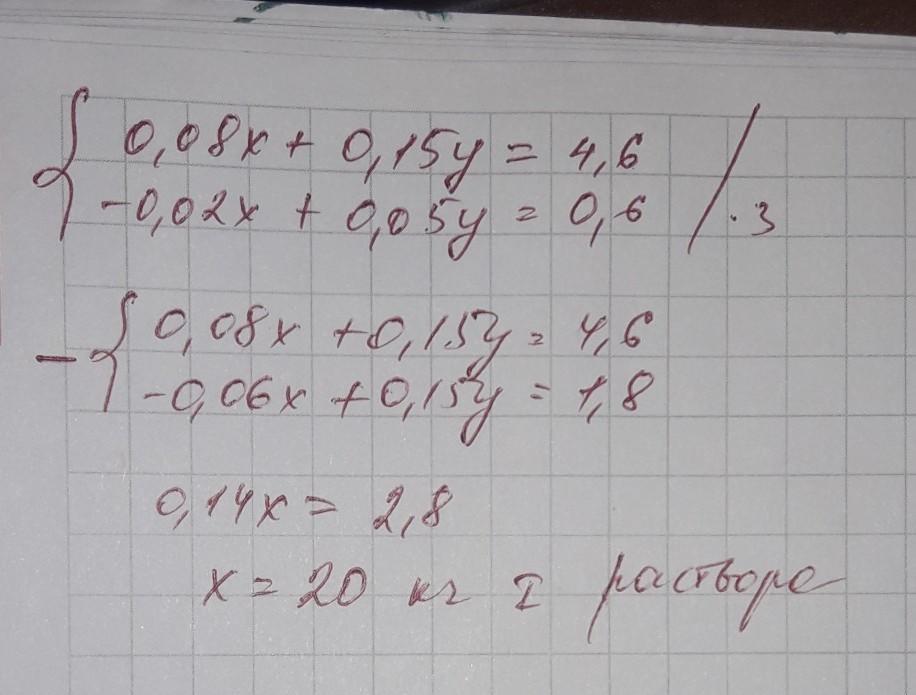 0,08x + 0,15y = 4,6
-0,02x + 0,05y = 0,6 / ·3
- 0,08x + 0,15y = 4,6
-0,06x + 0,15y = 1,8
0,14x = 2,8
x = 20 кг I раствора